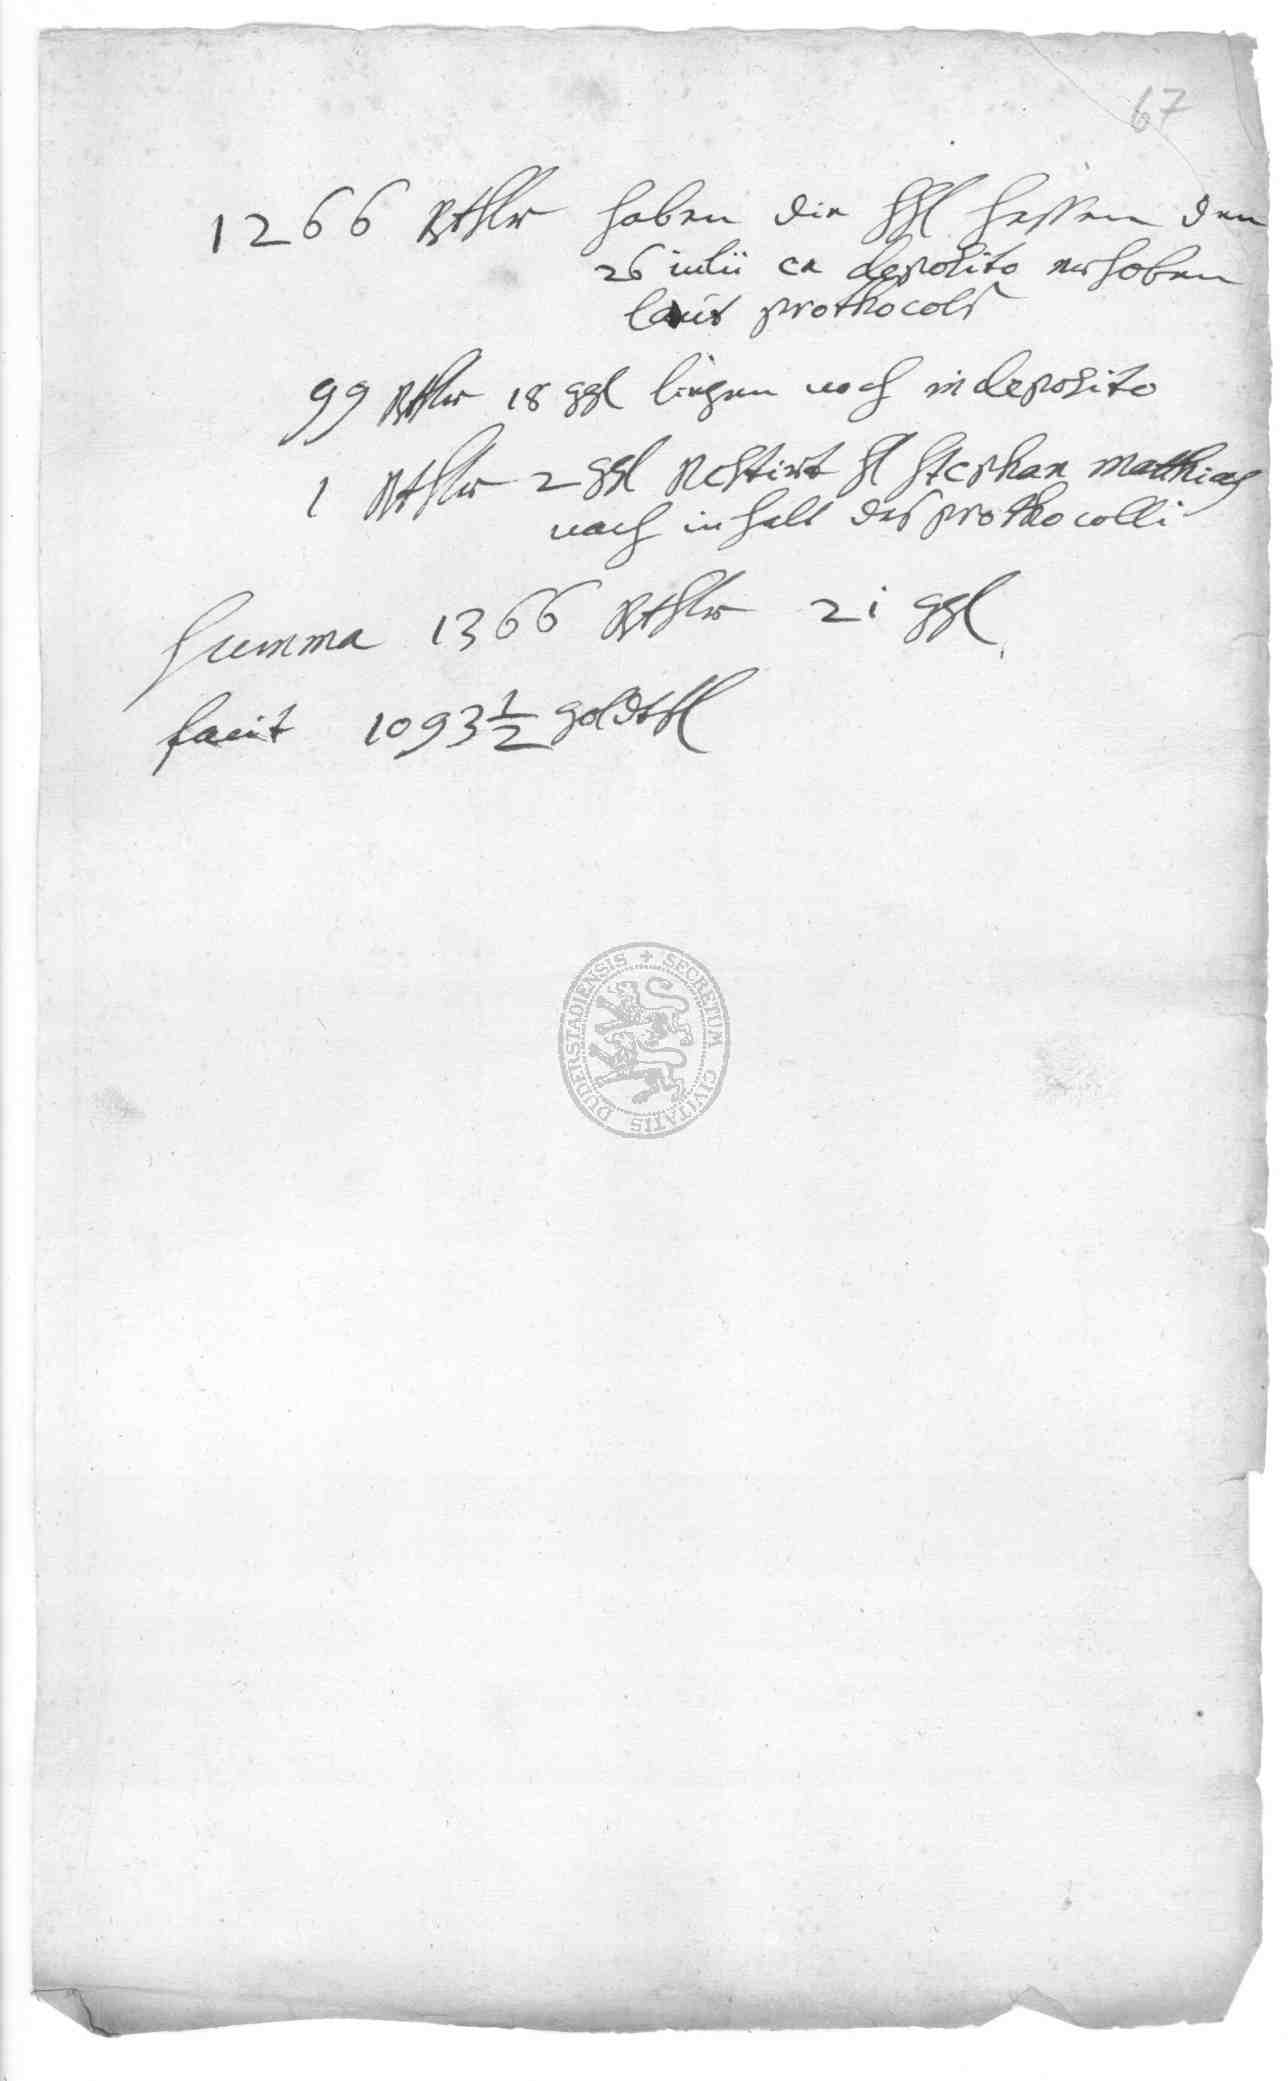 67
1266 Rthlr haben die hhl hessen den
26 iulii ex deposito erhoben
laut prothocols
99 Rthlr 18 ggl liegen noch in deposito
1 Rthlr 2 ggl restirt hl Stephan Matthias
nach inhalt des prothocolli
Summa 1366 Rthlr 21 ggl
facit 1093 1/2 goldtfl
SECRETUM CIVITATIS DUDERSTADIENSIS